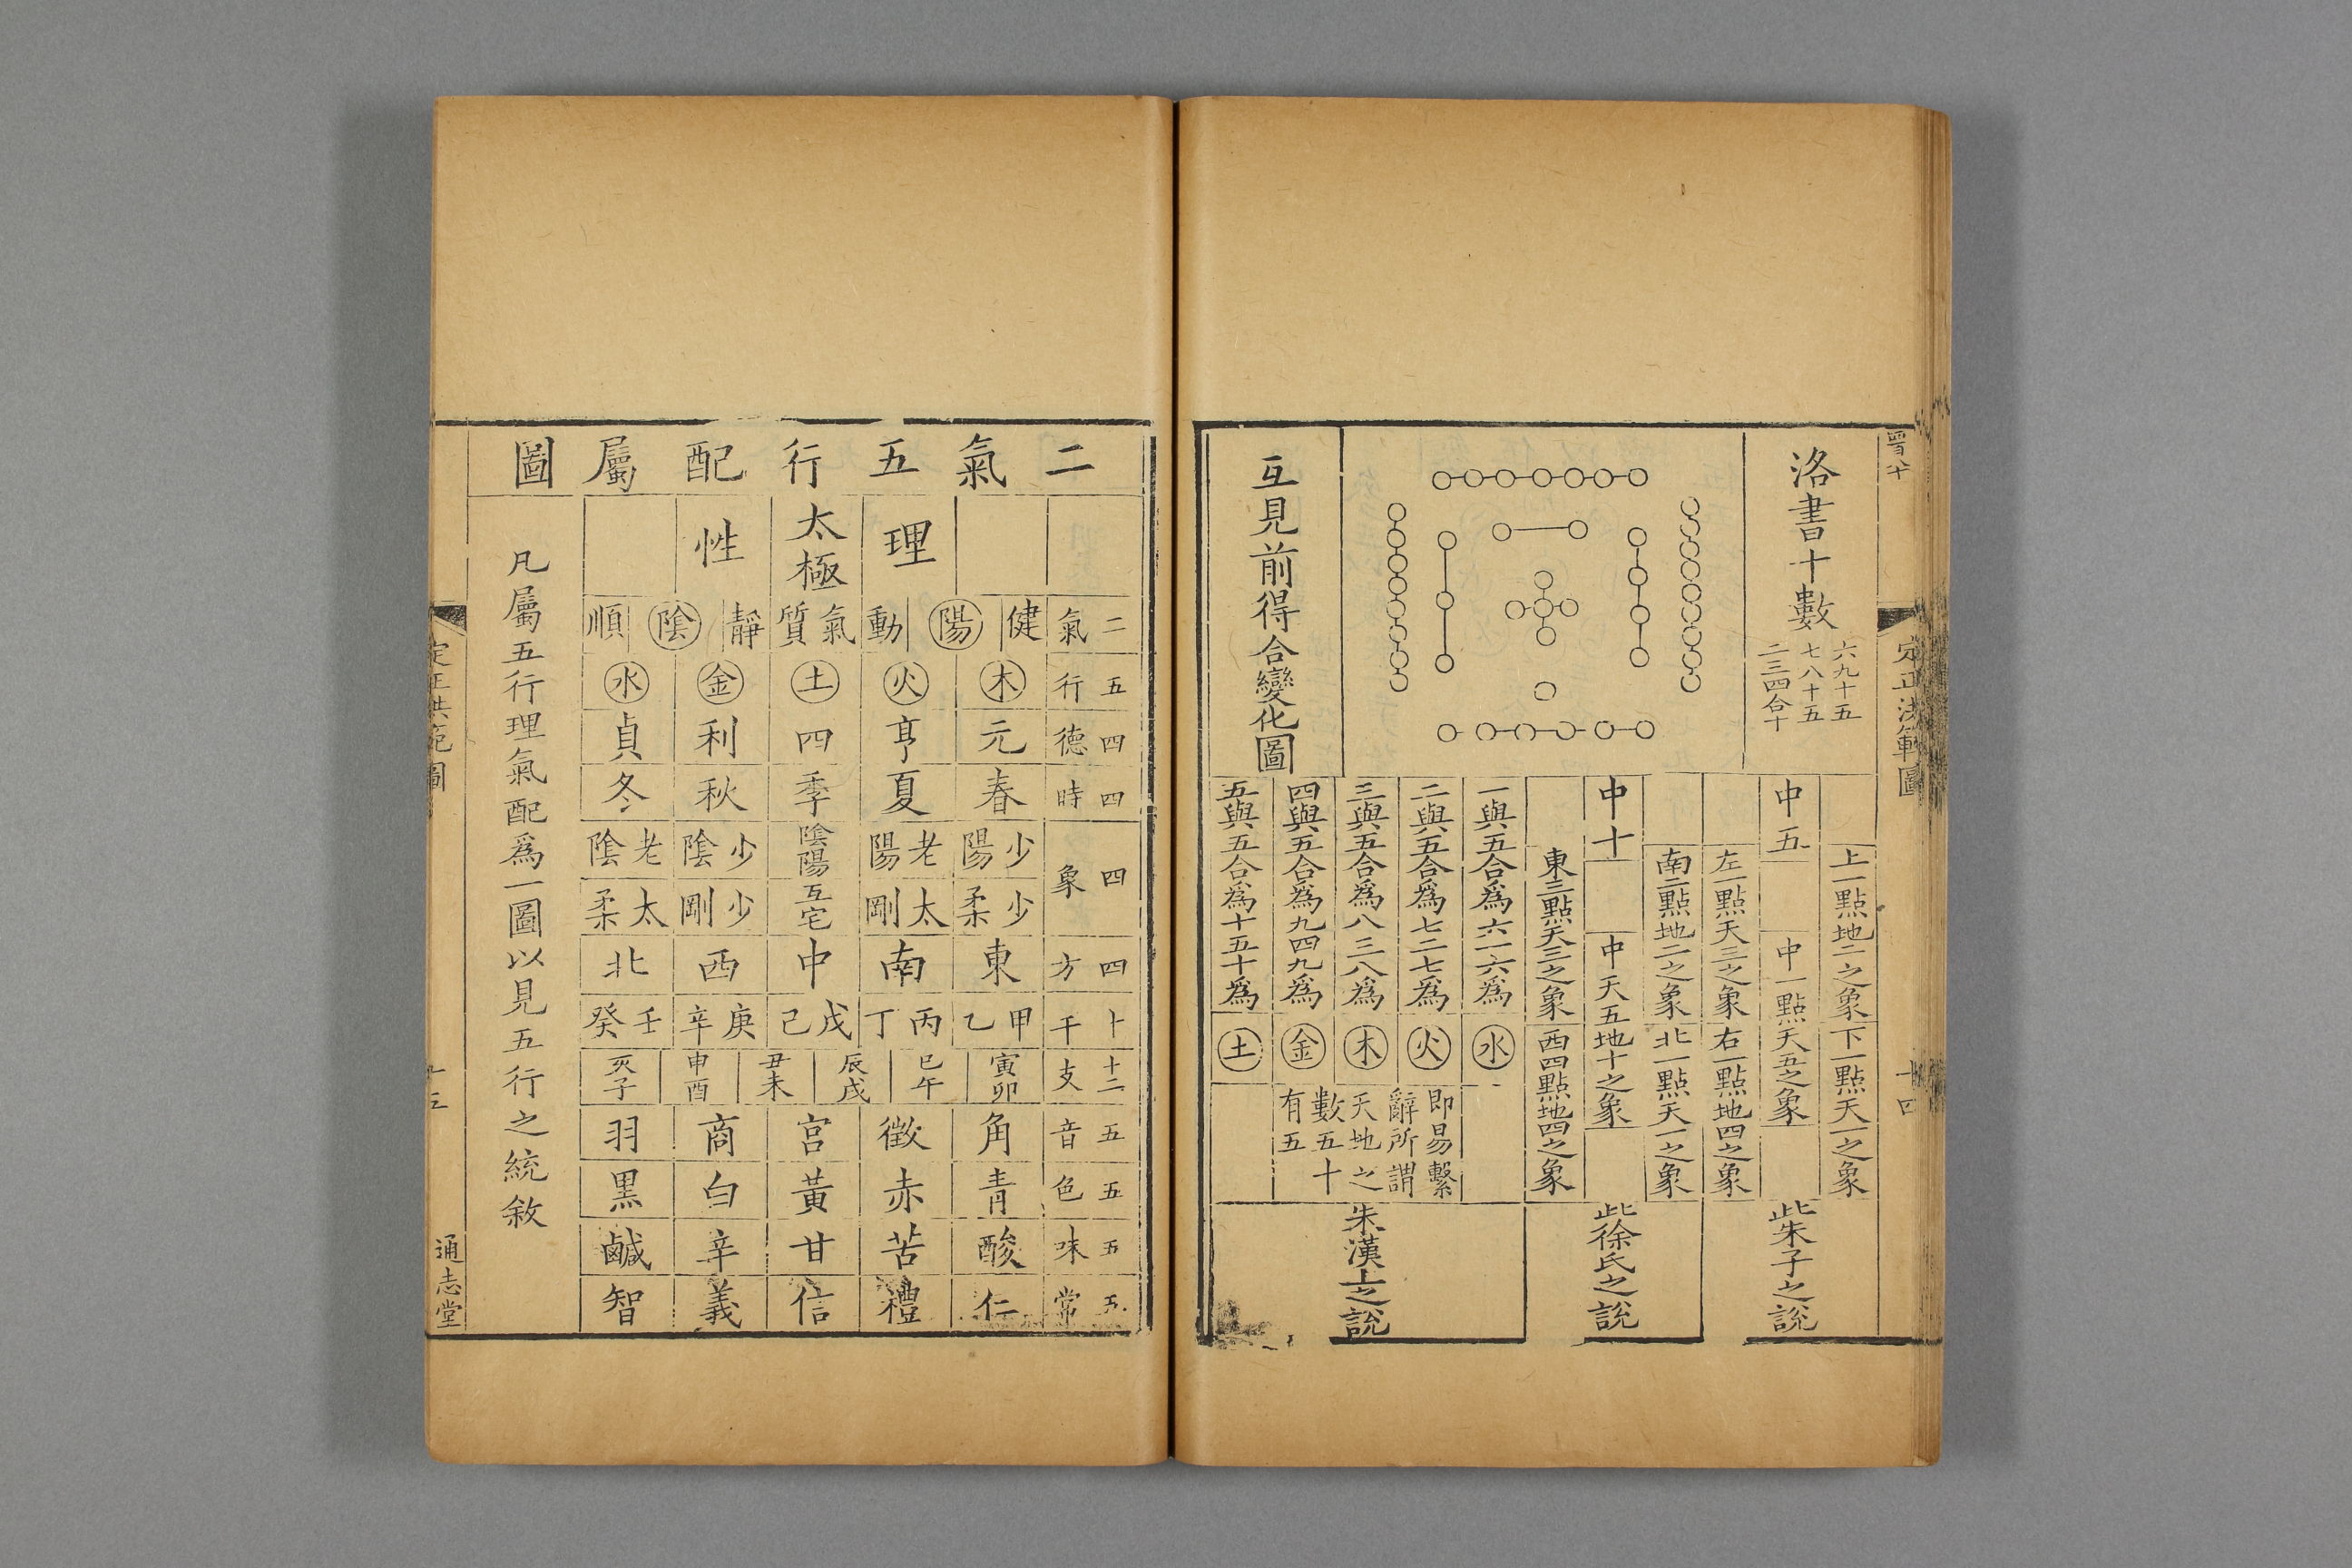 洛書十數
六九十五
七八十五
二三四合十
互見前得合變化圖
上一點地二之象下一點天一之象
中五
中一點天五之象
左一點天三之象右一點地四之象
南二點地二之象北一點天一之象
中十
中天五地十之象
東三點天三之象西四點地四之象
一與五合爲六一六爲水
二與五合爲七二七爲火
三與五合爲八三八爲木
四與五合爲九四九爲金
五與五合爲十五十爲土
即易繫
辭所謂
天地之
數五十
有五
此朱子之說
此徐氏之說
朱漢上之說
定正洪範圖
十四
二氣五行配屬圖
理 太極 性
二氣 健 陽 動 氣質 靜 陰 順
五行 木 火 土 金 水
四德 元 亨 四 利 貞
四時 春 夏 季 秋 冬
四象 少陽 老陽 陰陽 少陰 老陰
少柔 太剛 互宅 少剛 太柔
四方 東 南 中 西 北
十干 甲乙 丙丁 戊己 庚辛 壬癸
十二支 寅卯 巳午 辰戌 丑未 申酉 亥子
五音 角 徵 宮 商 羽
五色 青 赤 黃 白 黑
五味 酸 苦 甘 辛 鹹
五常 仁 禮 信 義 智
凡屬五行理氣配爲一圖以見五行之統敘
定正洪範圖
十三
通志堂